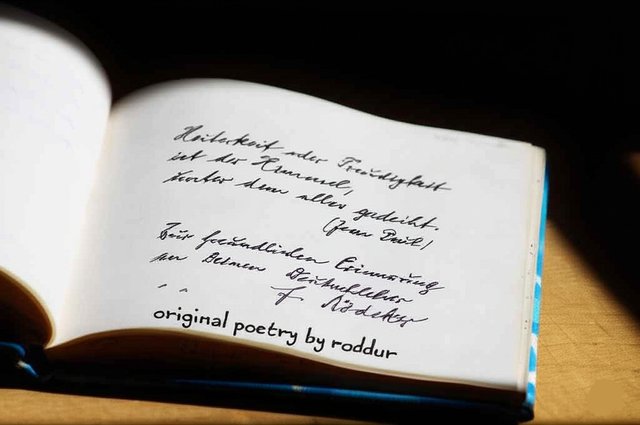 Heiterkeit oder Freudigkeit
ist der Himmel,
unter dem alles gedeiht.
(Jean Paul)
Zur freundlichen Erinnerung
an Deinen Deutschlehrer
F.
original poetry by roddur